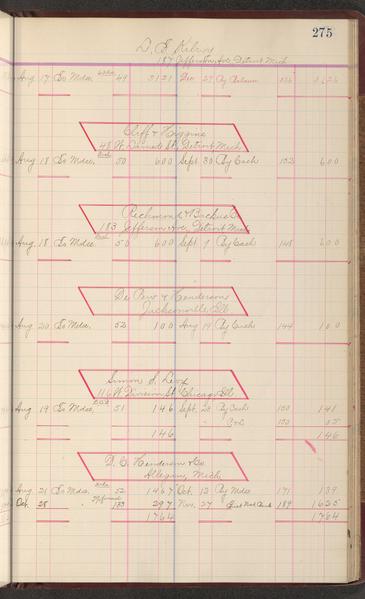 275
D. E.
187 Jefferson Ave. Detroit Mich
Aug 17 To Mdse. 49 3121 Dec 27 By
Cliff & Higgins
48 W. St. Detroit Mich.
Aug 18 To Mdse. 50 600 Sept. 30 By Cash 152 600
Richmond & Backus Co
183 Jefferson Ave. Detroit Mich
Aug. 18 To Mdse. 50 600 Sept. 9 By Cash 148 600
De Pew & Henderson
Jacksonville Ill
Aug 20 To Mdse. 52 100 Aug 19 By Cash 144 100
Simon S. Levy
116 W. Division St. Chicago Ill
Aug 19 To Mdse. 51 146 Sept. 20 By Cash 150 141
150 05
146 146
D. C. Henderson & Co.
Allegan, Mich.
Aug 21 To Mdse. 52 1467 Oct. 13 By Mdse 171 139
Oct. 28 " 183 297 Nov. 27 189 1625
1764 1764